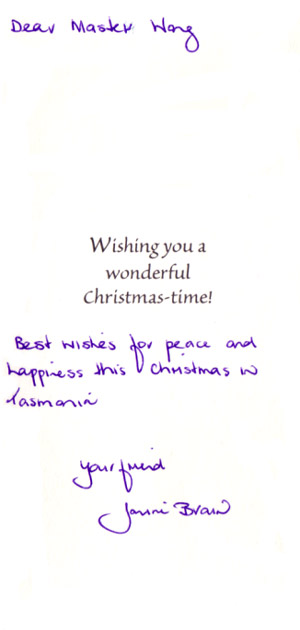 Dear Master Wong
Wishing you a
wonderful
Christmas-time!
Best wishes for peace and
happiness this Christmas in
Tasmania
Your friend